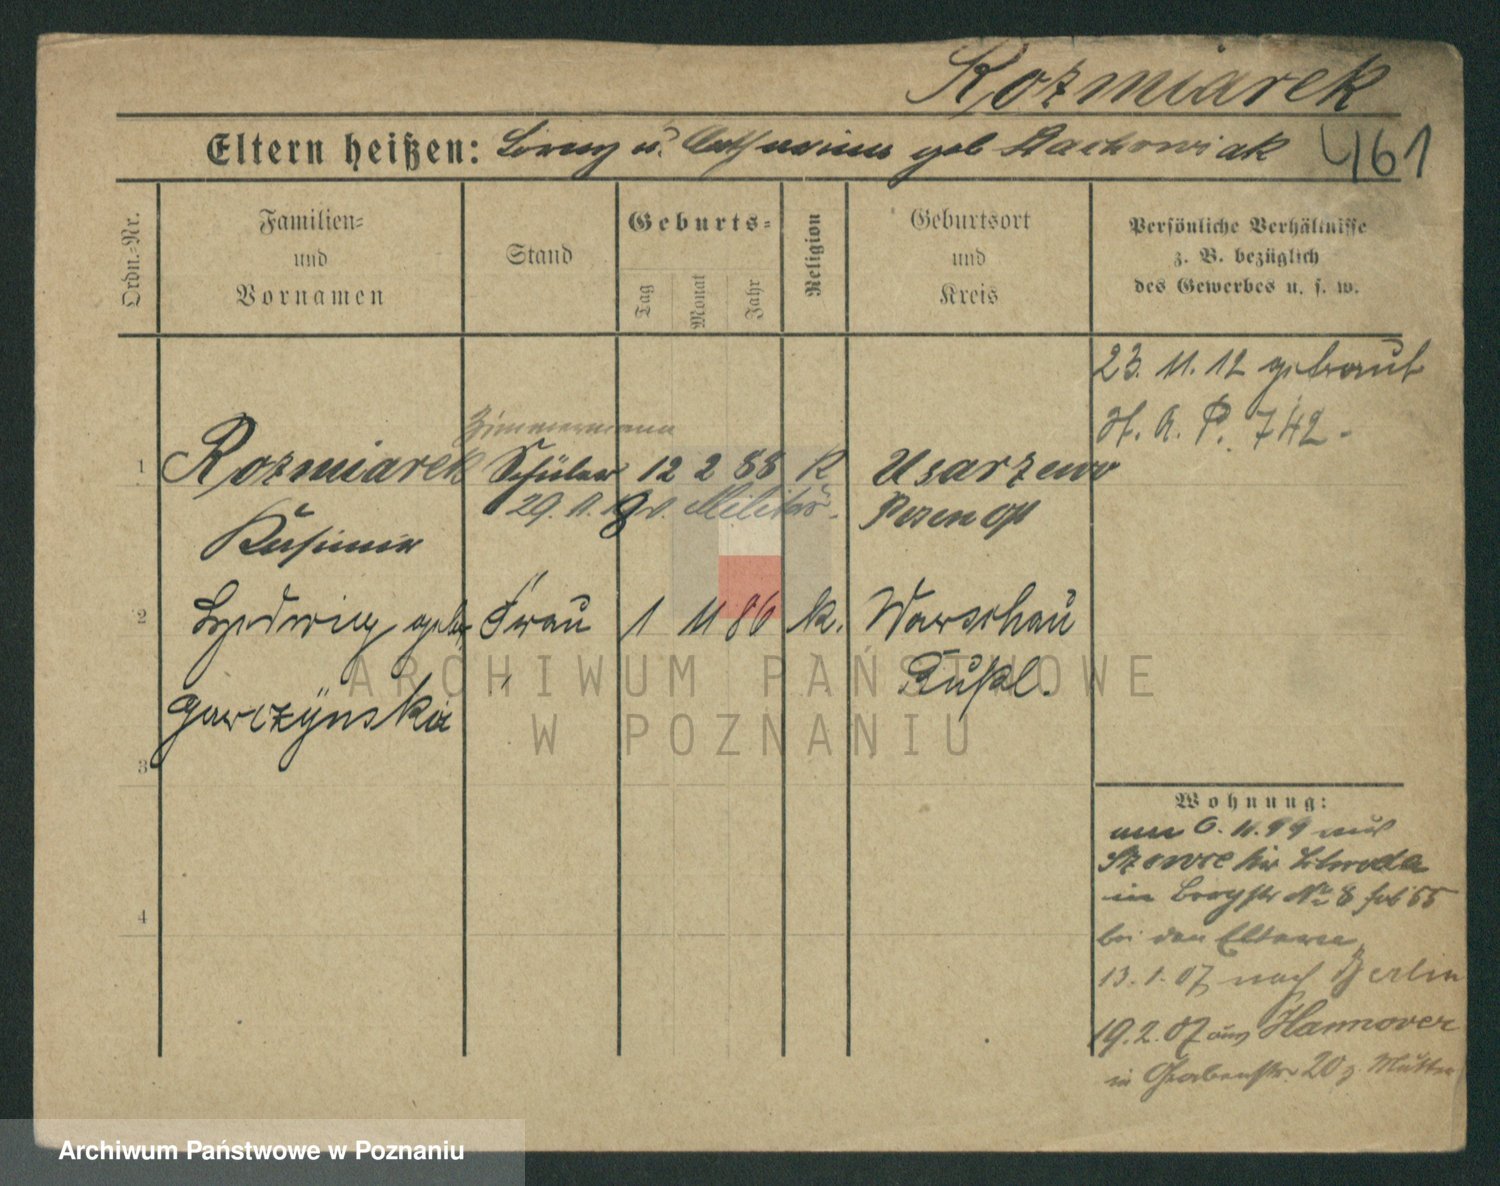 Rozmiarek
Eltern heißen: u. Catharina geb Stachowiak 461
Ordn.-Nr.
Familien- und Vornamen
Stand
Geburts-
Tag
Monat
Jahr
Religion
Geburtsort und Kreis
Persönliche Verhältnisse
z. B. bezüglich
des Gewerbes u. s. w.
23. 11. 12 getraut
H. A. P. 742.
Zimmermann
1 Rozmiarek Schüler 12 2 88 K Usarzewo
Militär. Posen Ost
Kasimir
2 Hedwig geb. Frau 1 11 86 K. Warschau
Rußl.
Garczynska
3
4
Wohnung:
am 6. 11. 99 aus
Kr Schroda
in No 8
bei den Eltern
13. 1. 07 nach Berlin
19. 2. 07 aus Hannover
in Grabenstr. 20 z. Mutter
ARCHIWUM PAŃSTWOWE
W POZNANIU
Archiwum Państwowe w Poznaniu